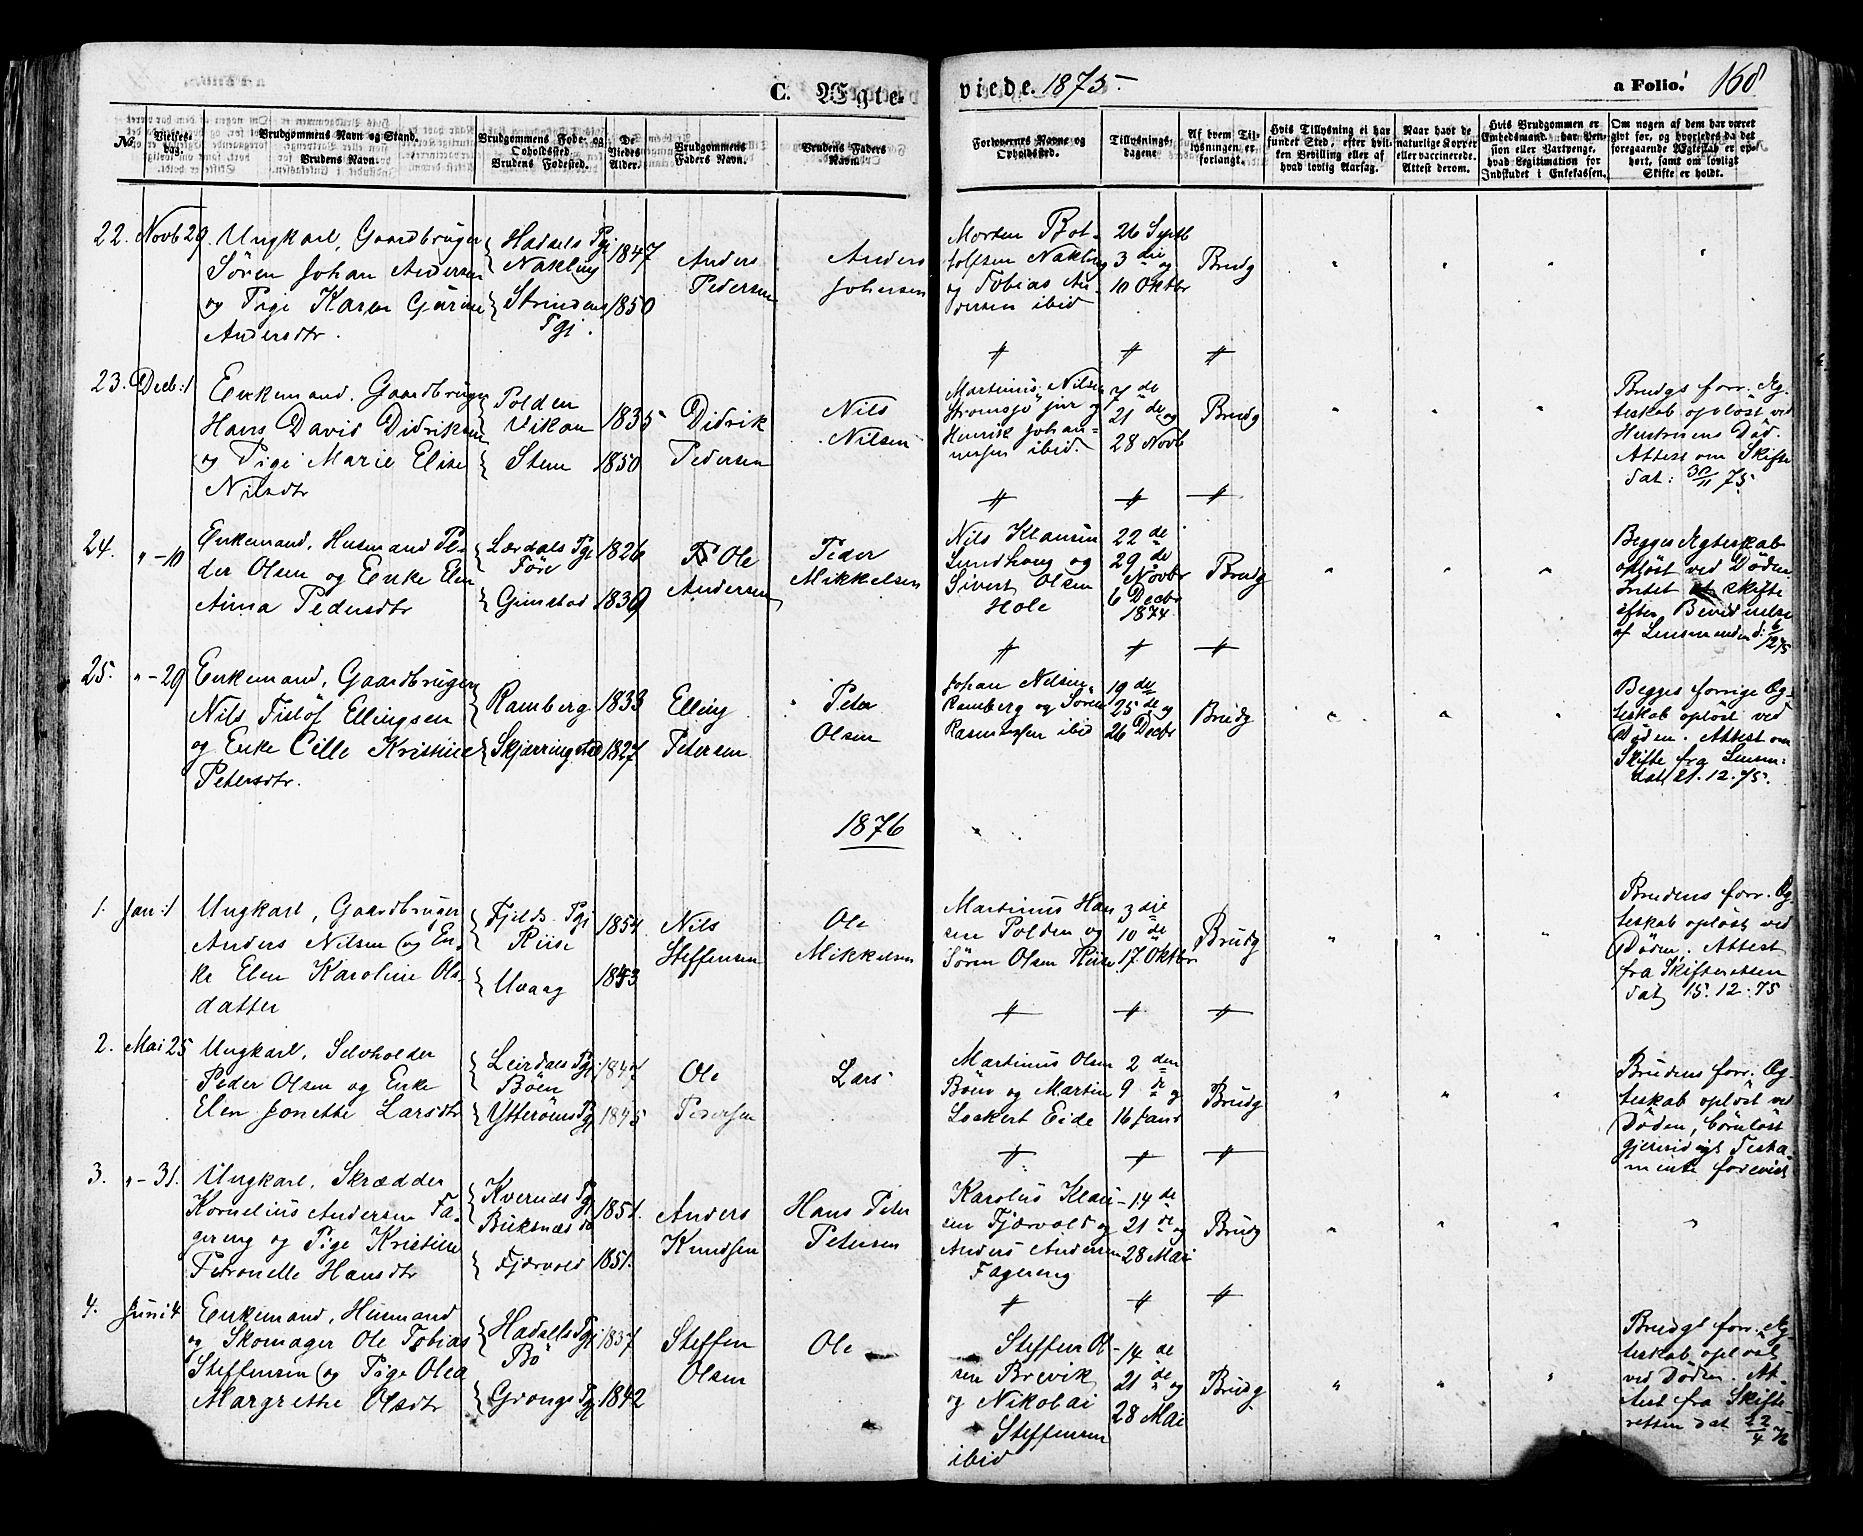 C. Ægte- viede. 1875. a Folio! 168
No. Vielses-dag. Brudgommens Navn og Stand. Brudens Navn. Brudgommens Føde- og Opholdssted. Brudens Fødested. De Viedes Alder. Brudgommens Faders Navn. Brudens Faders Navn. Forlovernes Navne og Opholdssted. Tillysnings-dagene. Af hvem Tillysningen er forlangt. Hvis Tillysning ei har fundet Sted, efter hvilken Bevilling eller af hvad lovlig Aarsag. Naar havt de naturlige Kopper eller vaccinerede. Attest derom. Hvis Brudgommen er Embedsmand, har Pension eller Vartpenge, hvad Legitimation for Indskudet i Enkekassen. Om nogen af dem har været gift før, og hvorledes da det foregaaende Ægteskab er ophørt, samt om lovligt Skifte er holdt.
22. Novb 29. Ungkarl, Gaardbruger Hadsels Pgj 1847 Anders Anders Morten Bot- 26 Septb Brudg
Søren Johan Andersen Nakling Pedersen Johnsen tolfsen Nakling 3 die og
og Pige Karen Gurine Strindens 1850 og Tobias An- 10 Oktbr
Andersdtr. Pgj. dersen ibid
23. Decb: 1 Enkemand, Gaardbruger Polden 1835 Didrik Nils Martinus Nilsen de Brudg Brudgs forr. Æg-
Hans David Didriksen Vikan Pedersen Nilsen Stromsjø jnr og 21 de og teskab opløst ved
og Pige Marie Elise Stene 1850 Henrik Johan- 28 Novb Hustruens Død.
Nilsdtr nesen ibid. Attest om Skifte
dat: 30/11 75.
24. " - 10 Enkemand, Husmand Pe- Lærdals Pgj 1826 Ole Peder Nils Klausen 22 de Brudg Begges Ægteskab
der Olsen og Enke Elen Føre Andersen Mikkelsen Lundhaug og 29 de opløst ved Døden.
Anna Pedersdtr Gimstad 1839 Sivert Olsen Novbr Intet skifte
Hole 6 Decbr efter Bevidnelse
1874 af Lensmanden d: 6/12 75
25. " - 29 Enkemand, Gaardbruger Ramberg 1833 Elling Peter Johan Nilsen 19 de Brudg Begges forrige Æg-
Nils Tisløf Ellingsen Petersen Olsen Ramberg og Søren 25 de og teskab opløst ved
og Enke Cille Kristine Skjærringstad 1827 Rasmussen ibid 26 Decbr Døden. Attest om
Petersdtr. Skifte fra Lensm:
dat 21.12.75.
1876
1. Jan: 1 Ungkarl, Gaardbruger Fjelds Pgj 1854 Nils Ole Martinus Han 3 die Brudg Brudens forr. Æg
Anders Nilsen og En- Riise Steffensen Mikkelsen sen Polden og 10 de teskab opløst ved
ke Elen Karoline Ols- Uvaag 1843 Søren Olsen Riise 17 Oktbr Døden. Attest
datter fra Skifteretten
dat 15.12.75
2. Mai 25 Ungkarl, Selvholder Leirdals Pgj. 1847 Ole Lars Martinus Olsen 2 den Brudg Brudens forr. Æg-
Peder Olsen og Enke Böen Pedersen Böen og Martin 9 de og teskab opløst ved
Elen Jonette Larsdtr Ytterøens Pgj 1845 Lockert Eide 16 Janr Døden, börnløst
gjensidigt Testa-
mente forevist
3. " - 31. Ungkarl, Skrædder Kvernæs Pgj 1851. Anders Hans Peter Karolus Klau - 14 de Brudg
Kornelius Andersen Fa- Buksnæs do Knudsen Petersen sen Fjærvold og 21 de og
gereng og Pige Kristine Fjærvold 1851. Anders Andersen 28 Mai
Petronelle Hansdtr Fagereng
4. Juni 4 Enkemand, Husmand Hadsels Pgj 1837 Steffen Ole Steffen Ol - 14 de Brudg Brudgs forr. Æg-
og Skomager Ole Tobias Bö Olsen sen Brevik 21 de og teskab opløst
Steffensen og Pige Olea Grongs Pgj 1842 og Nikolai 28 Mai ved Døden. At-
Margrethe Olsdtr Steffensen test fra Skifte-
ibid retten dat 22/4 76